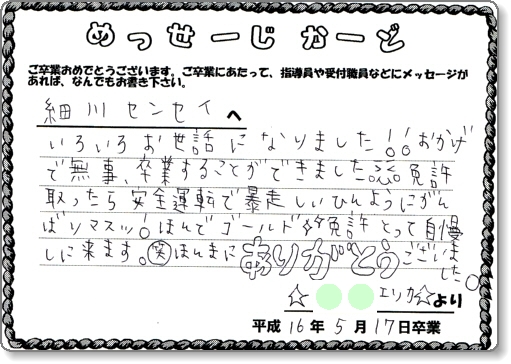 めっせーじかーど
ご卒業おめでとうございます。ご卒業にあたって、指導員や受付職員などにメッセージが
あれば、なんでもお書き下さい。
細川センセイへ
いろいろお世話になりました!!おかげ
で無事、卒業することができました 免許
取ったら安全運転で暴走しいひんようにがん
ばリマスッ!ほんでゴールド☆☆免許とって自慢
しに来ます。(笑)ほんまにありがとうございました。
☆ エリカ☆より
平成16年5月17日卒業